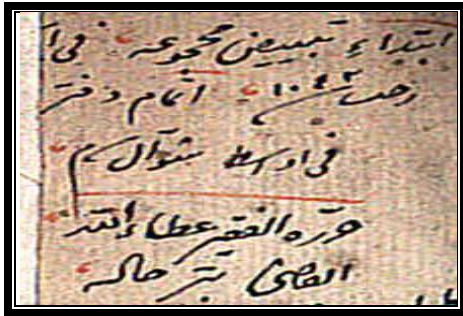 ابتداء تبييض مجموعه فى
رجب اتمام دفتر
فى اواسط شوال
حرّره الفقير عطاء الله
القاضى بترحاله